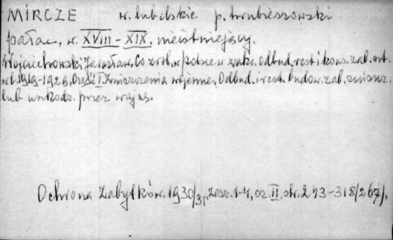 MIRCZE w. lubelskie p. hrubieszowski
pałac, w. XVIII – XIX, nieistniejący.
Wojciechowski Jarosław, Co zrob. w Polsce w zakr. Odbud. rest i kons. zab. art.
w l. 1919-1929, Część I Zniszczenia wojenne, Odbud. i rest. budow. zab. zniszcz.
lub uszkodz. przez wojnę.
Ochrona Zabytków. 1930/31, zesz. 1-4, cz. II, str. 243-318/267/.